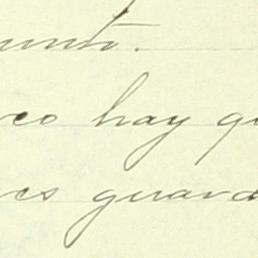 unto.
co hay qu
es guard